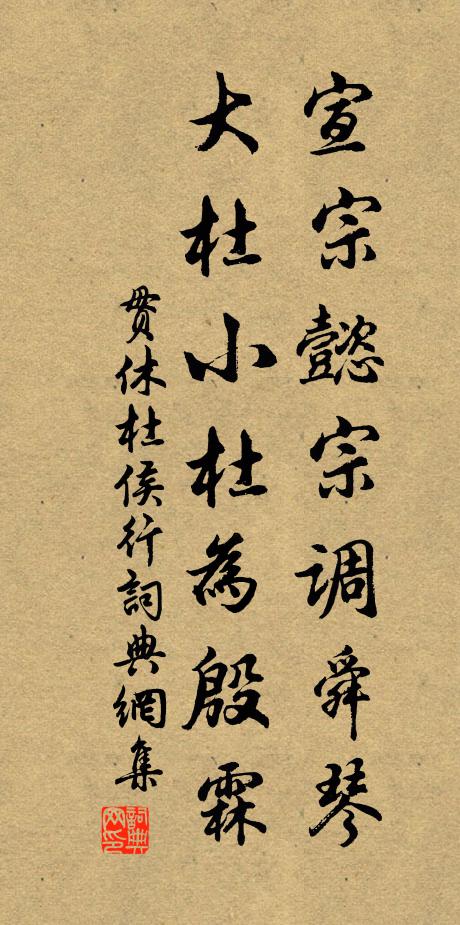 宣宗懿宗调舜琴
大杜小杜為殷霖
贯休杜侯行詞典網集
詞典網印